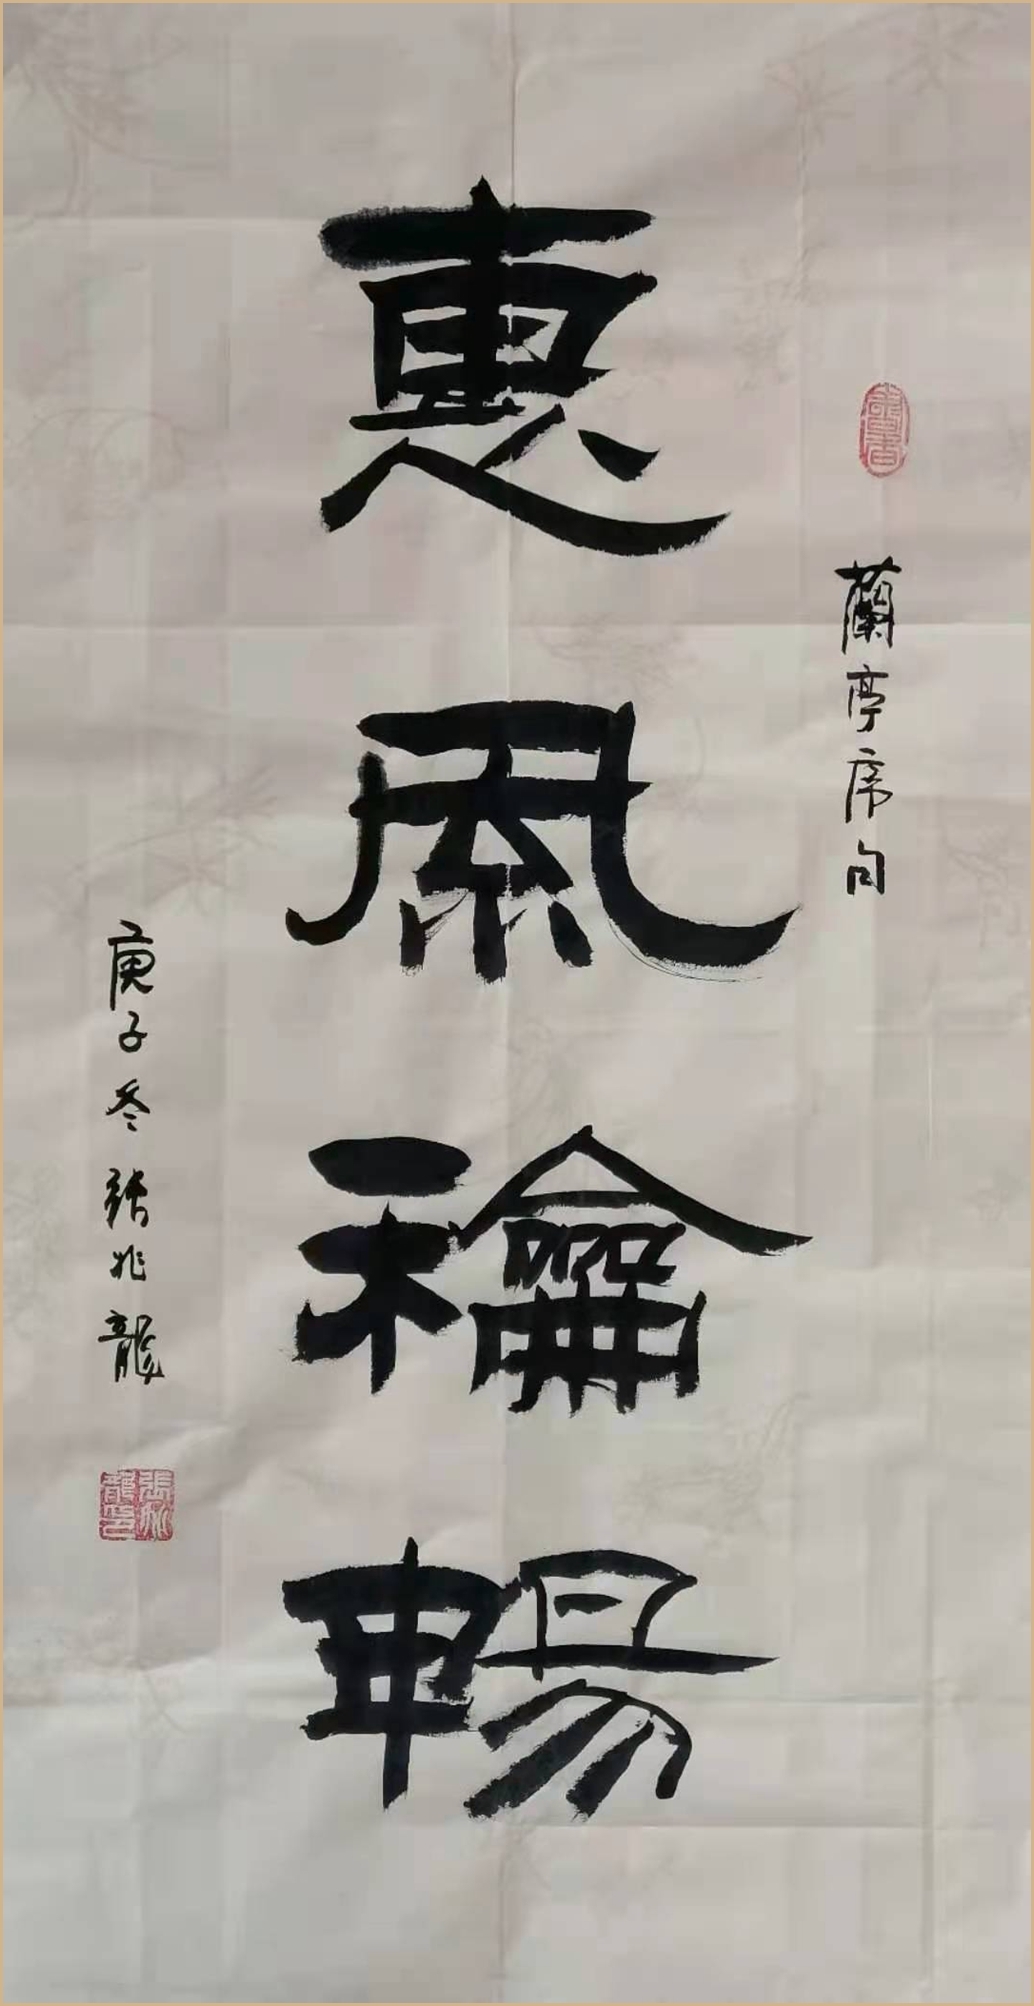 書香
蘭亭序句
惠風龢暢
庚子冬張兆龍
張兆龍印